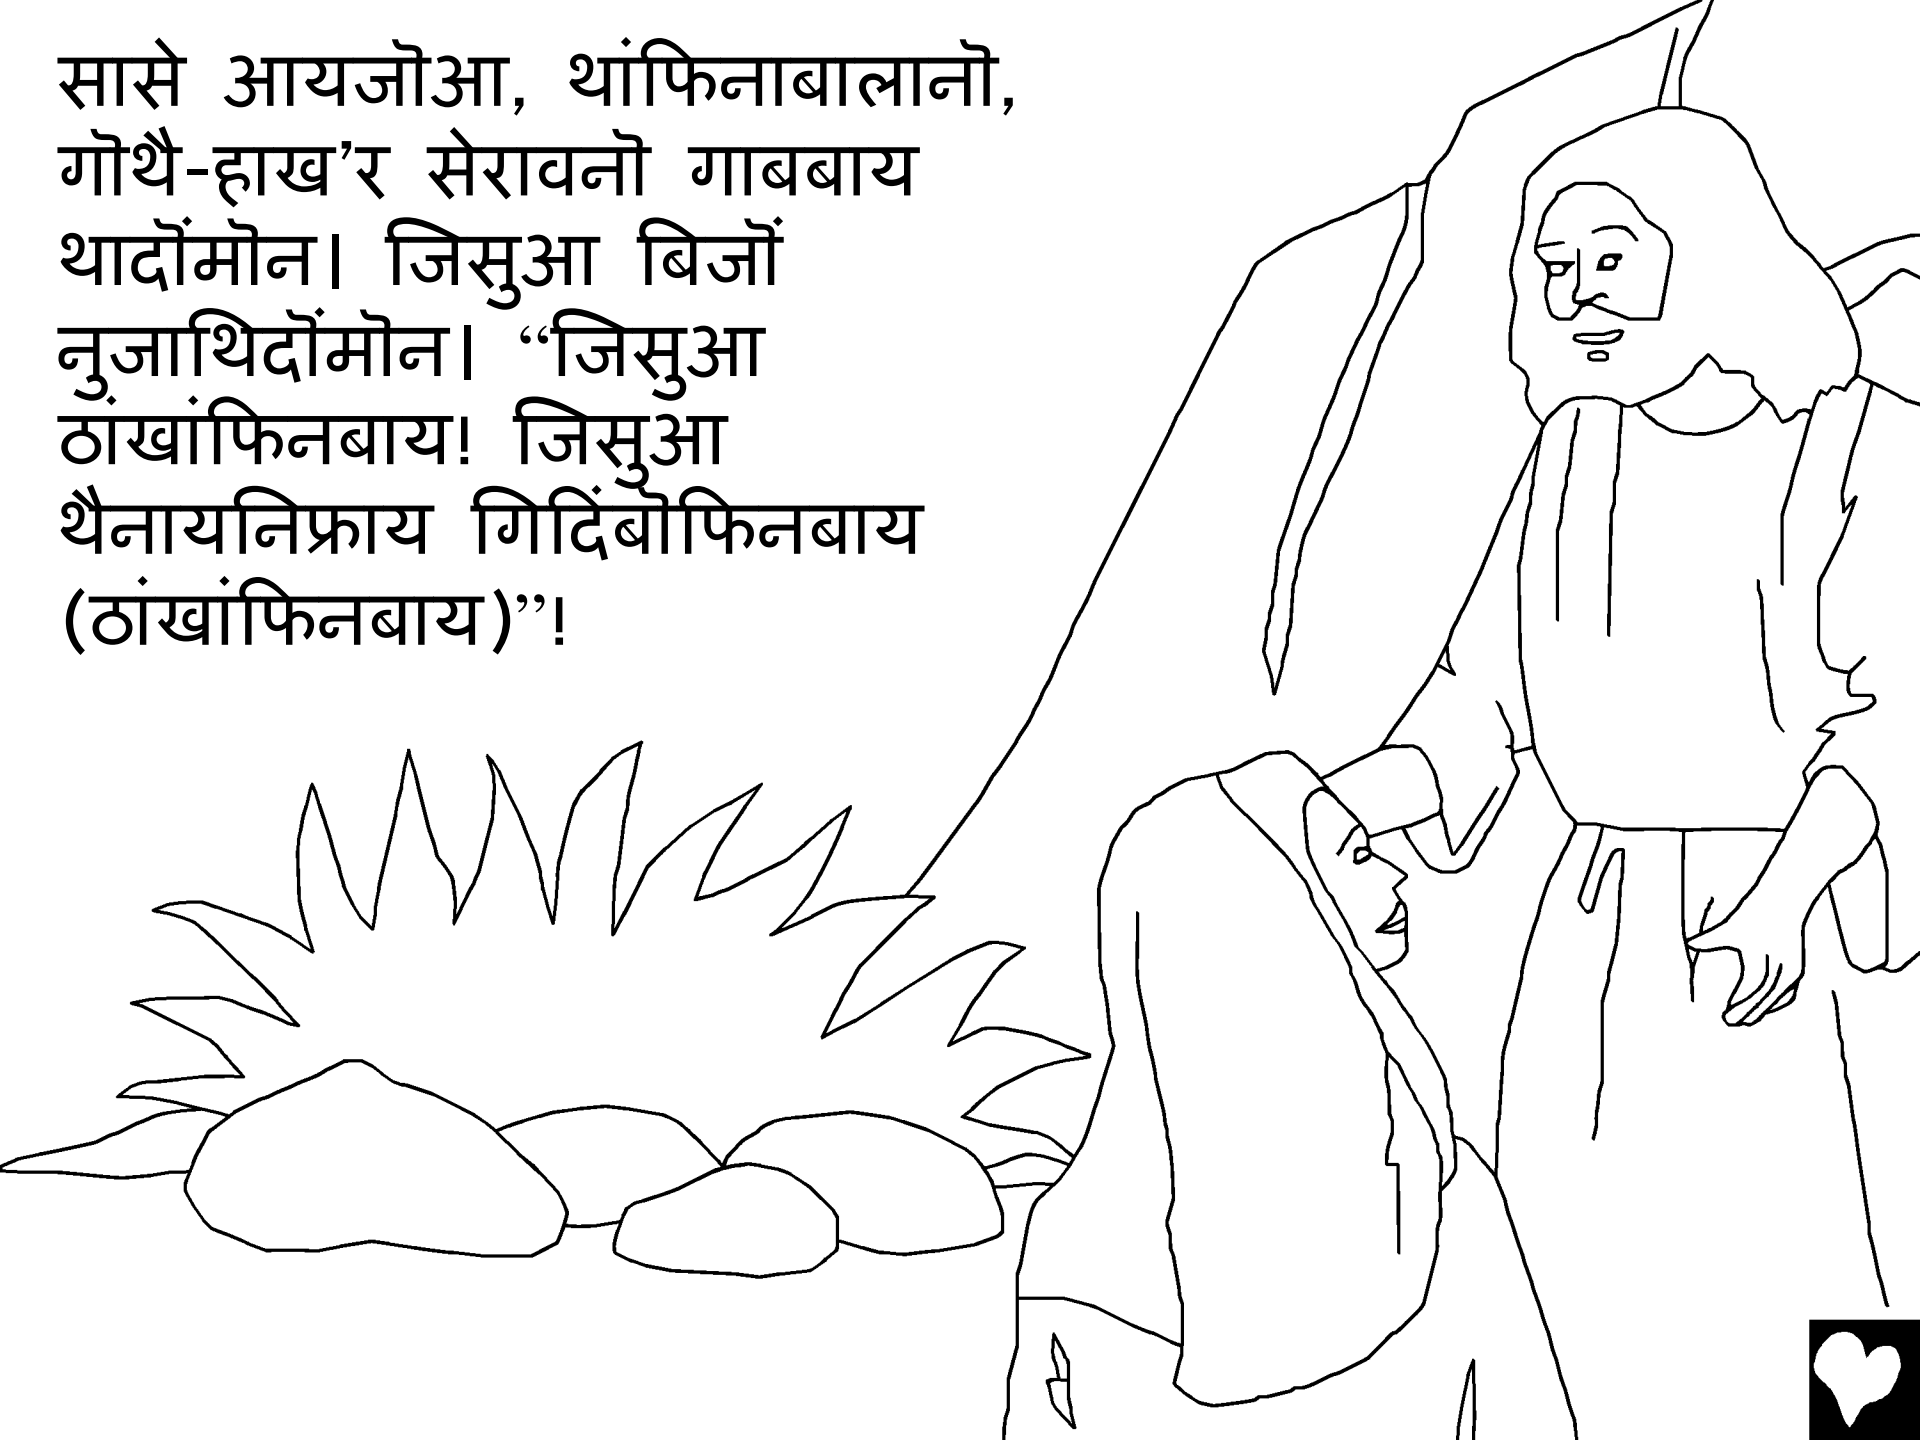 सासे आयजॊआ, थांफिनाबालानॊ,
गॊथै-हाख’र सेरावनॊ गाबबाय
थादॊंमॊन। जिसुआ बिजॊं
नुजाथिदॊंमॊन। “जिसुआ
ठांखांफिनबाय! जिसुआ
थैनायनिफ्राय गिदिंबॊफिनबाय
(ठांखांफिनबाय)”!